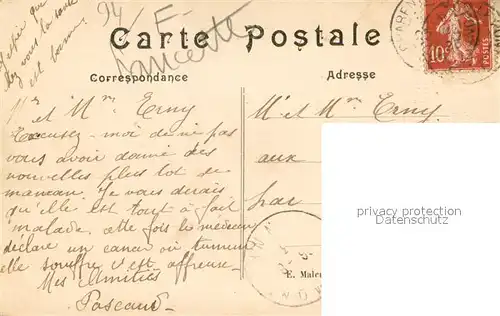 94
J'espère que
chez vous la santé
est bonne
Carte Postale
Correspondance
Adresse
Mr et Mme Erny
Excusez-moi de ne pas
vous avoir donné des
nouvelles plus tot de
maman. Je vous dirais
qu'elle est tout à fait
malade, cette fois le médecin
déclare un cancer ou tumeur
elle souffre c'est affreux
Mes Amitiés
Pascaud
Mr et Mme Erny
aux
par
10c
POSTES
CHAREN
privacy protection
Datenschutz
E. Maleu